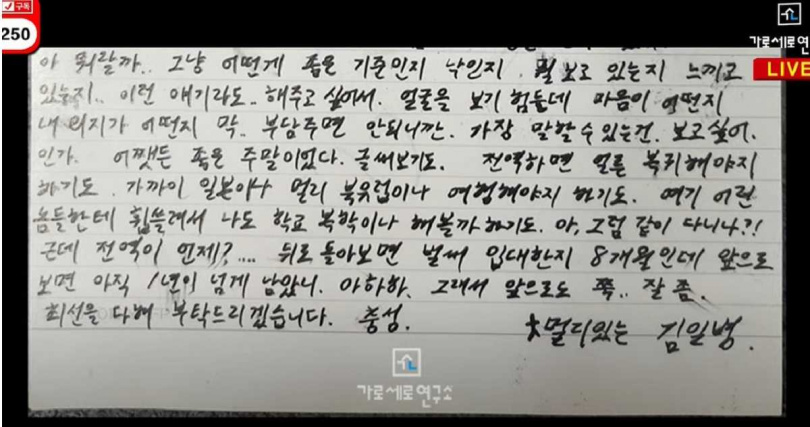 구독
250
가로세로연
LIVE
아 뭐랄까.. 그냥 어떤게 좋은 기준인지 낙인지. 뭘 보고 있는지 느끼고
있는지.. 이런 얘기라도.. 해주고 싶어서. 얼굴을 보기 힘든데 마음이 어떤지
내 의지가 어떤지 막.. 부담주면 안되니깐. 가장 말할 수 있는건. 보고싶어.
인가. 어쨋든 좋은 주말이었다. 글써보기도. 전역하면 얼른 복귀해야지
하기도. 가까이 일본이나 멀리 북유럽이나 여행해야지 하기도. 여기 어린
놈들한테 휩쓸려서 나도 학교 복학이나 해볼까 하기도. 아, 그럼 같이 다니나?!
근데 전역이 언제?.... 뒤로 돌아보면 벌써 입대한지 8개월인데 앞으로
보면 아직 1년이 넘게 남았니. 아하하. 그래서 앞으로도 쭉.. 잘 좀.
최선을 다해 부탁드리겠습니다. 충성.
멀리있는 김일병.
가로세로연구소